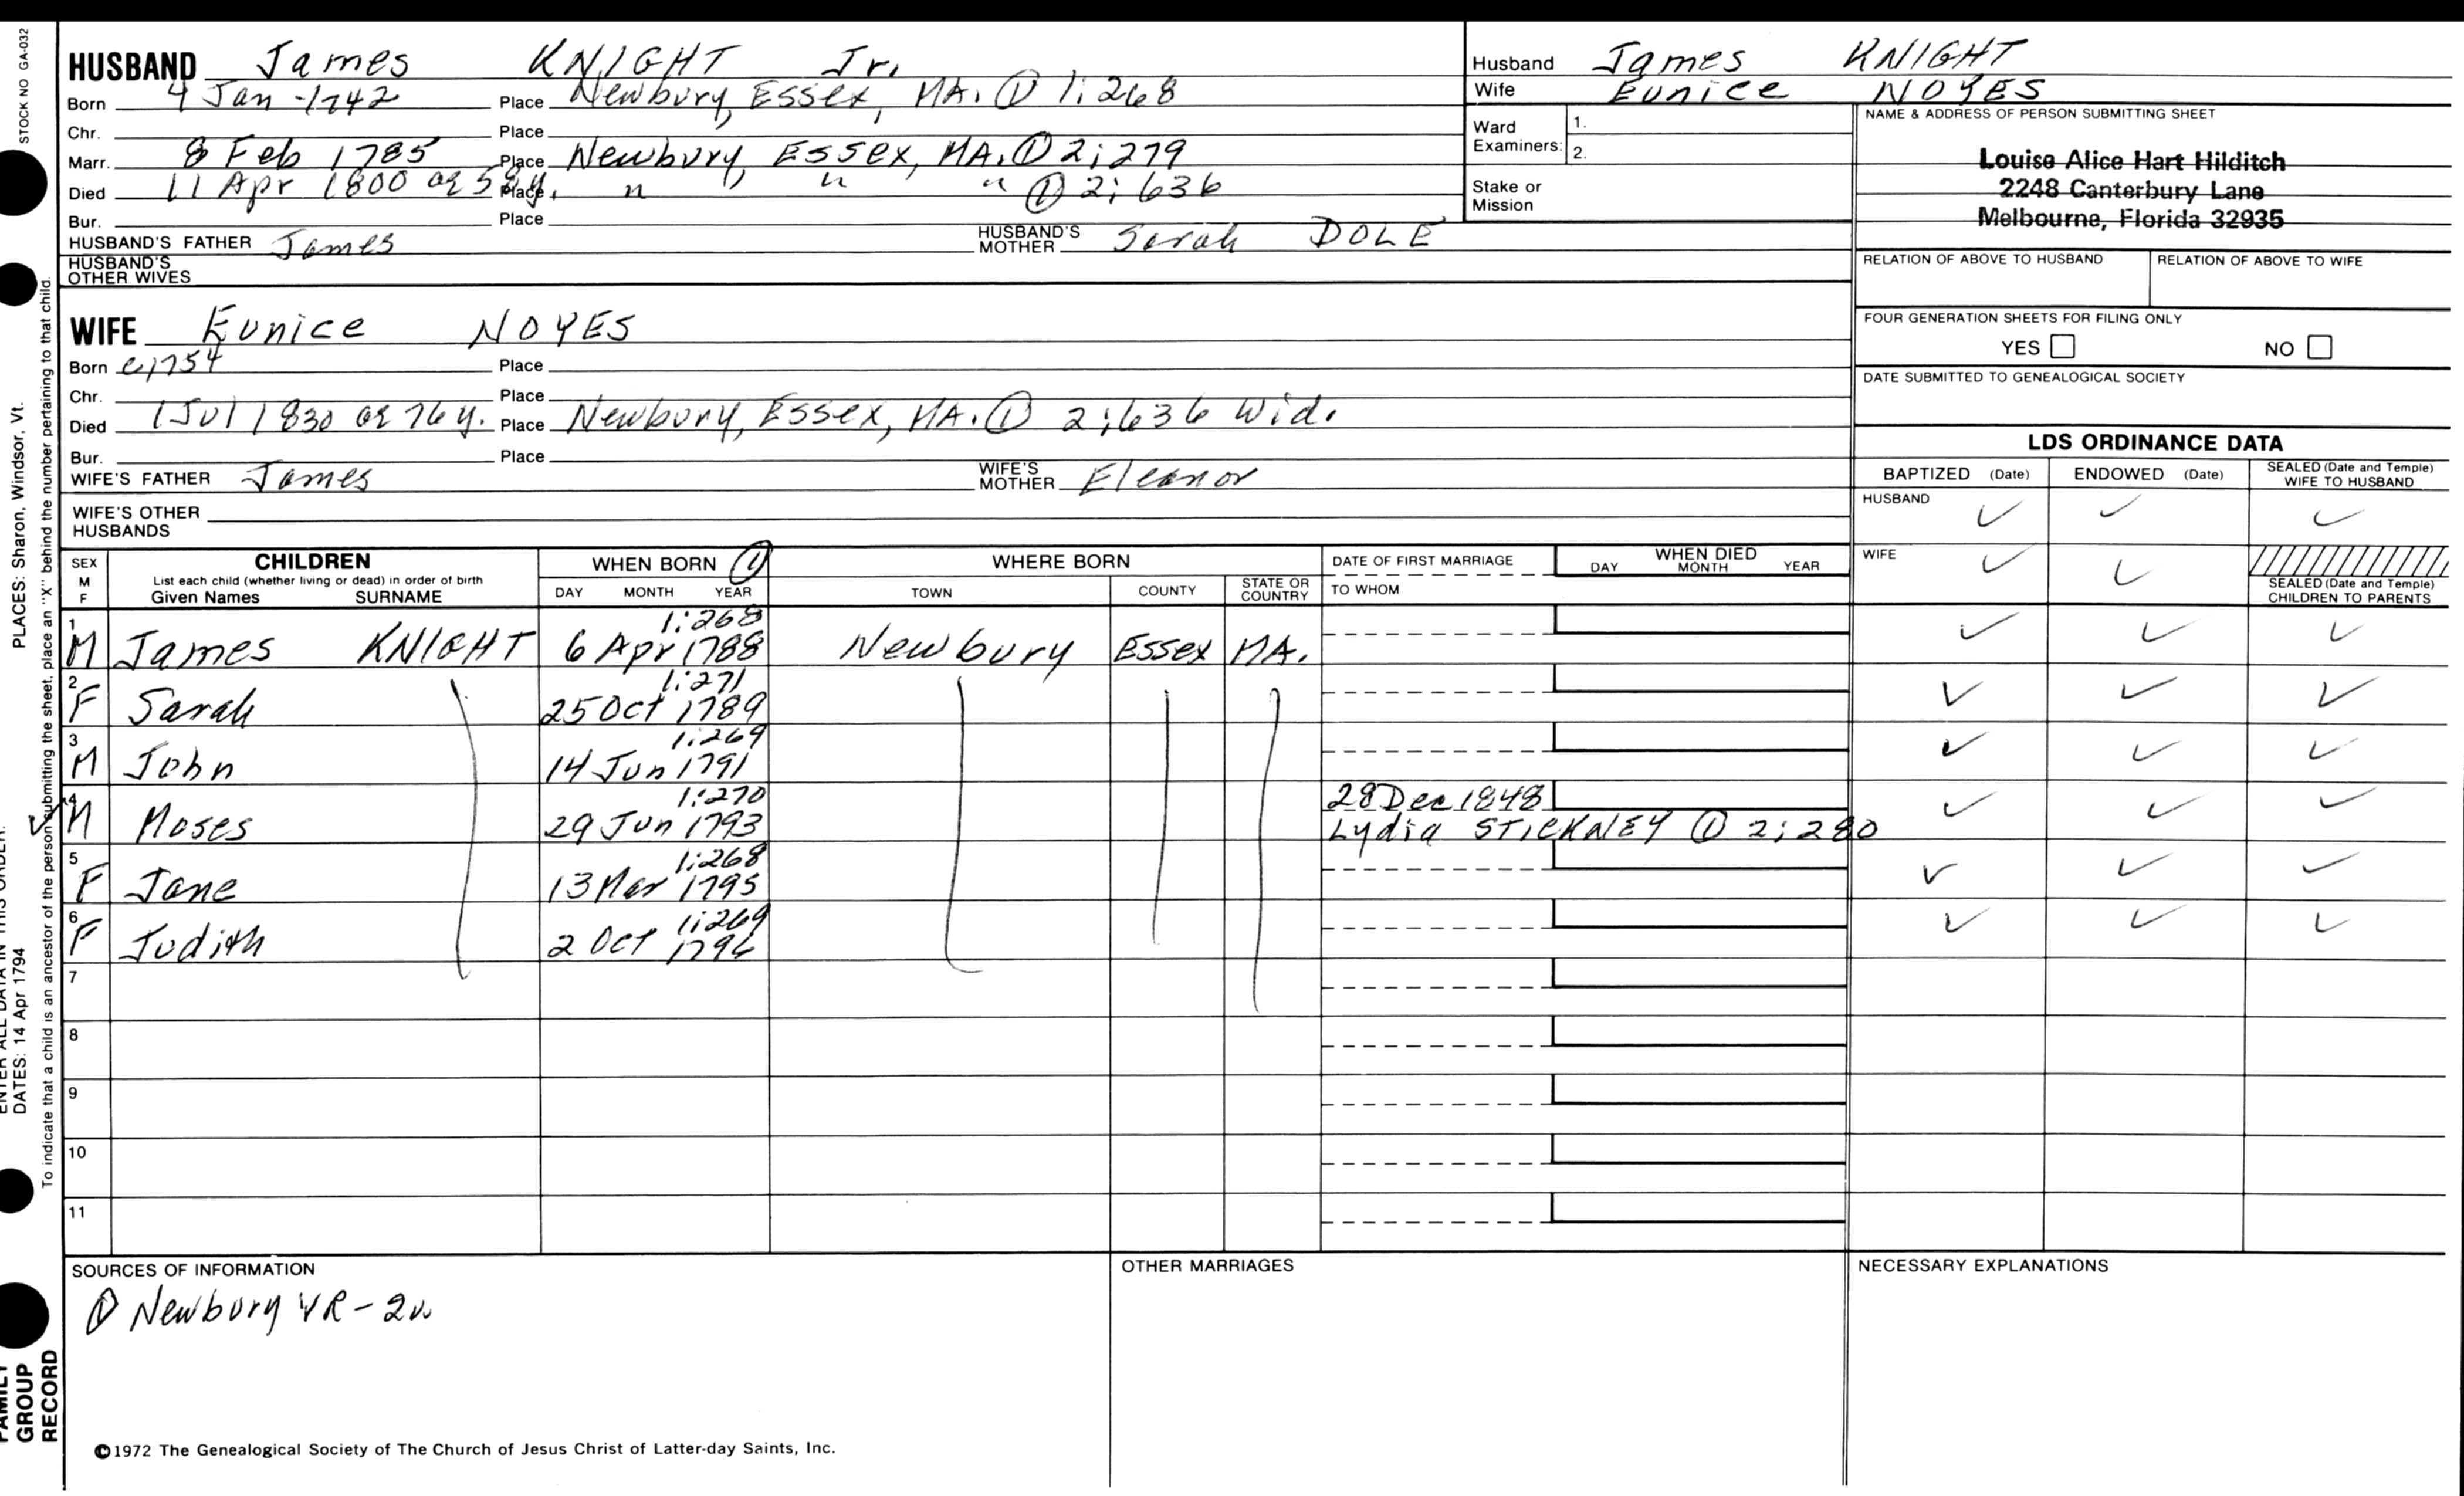 STOCK NO GA-032
PLACES: Sharon, Windsor, Vt.
DATES: 14 Apr 1794
To indicate that a child is an ancestor of the person submitting the sheet, place an "X" behind the number pertaining to that child.
GROUP
RECORD
HUSBAND James KNIGHT Jr.
Born 4 Jan 1742 Place Newbury, Essex, MA. ① 1:268
Chr. Place
Marr. 8 Feb 1785 Place Newbury, Essex, MA. ① 2:279
Died 11 Apr 1800 Place " " " ① 2:636
Bur. Place
HUSBAND'S FATHER James HUSBAND'S MOTHER Sarah DOLE
HUSBAND'S OTHER WIVES
WIFE Eunice NOYES
Born c1754 Place
Chr. Place
Died 1 Jul 1830 ag 76 y. Place Newbury, Essex, MA. ① 2:636 Wid.
Bur. Place
WIFE'S FATHER James WIFE'S MOTHER Eleanor
WIFE'S OTHER HUSBANDS
Husband James KNIGHT
Wife Eunice NOYES
Ward Examiners: 1. 2.
Stake or Mission
NAME & ADDRESS OF PERSON SUBMITTING SHEET
Louise Alice Hart Hilditch
2248 Canterbury Lane
Melbourne, Florida 32935
RELATION OF ABOVE TO HUSBAND RELATION OF ABOVE TO WIFE
FOUR GENERATION SHEETS FOR FILING ONLY
YES NO
DATE SUBMITTED TO GENEALOGICAL SOCIETY
LDS ORDINANCE DATA
BAPTIZED (Date) ENDOWED (Date) SEALED (Date and Temple) WIFE TO HUSBAND
HUSBAND ✓ ✓ ✓
WIFE ✓ ✓
SEALED (Date and Temple) CHILDREN TO PARENTS
SEX M F CHILDREN WHEN BORN ① WHERE BORN DATE OF FIRST MARRIAGE WHEN DIED
List each child (whether living or dead) in order of birth
Given Names SURNAME DAY MONTH YEAR TOWN COUNTY STATE OR COUNTRY TO WHOM DAY MONTH YEAR
1:268
1 M James KNIGHT 6 Apr 1788 Newbury Essex MA. ✓ ✓ ✓
1:271
2 F Sarah 25 Oct 1789 ✓ ✓ ✓
1:269
3 M John 14 Jun 1791 ✓ ✓ ✓
1:270 28 Dec 1848
✓ 4 M Moses 29 Jun 1793 Lydia STICKNEY ① 2:280 ✓ ✓ ✓
1:268
5 F Jane 13 Mar 1795 ✓ ✓ ✓
1:269
6 F Judith 2 Oct 1796 ✓ ✓ ✓
7
8
9
10
11
SOURCES OF INFORMATION OTHER MARRIAGES NECESSARY EXPLANATIONS
① Newbury VR - 2v
©1972 The Genealogical Society of The Church of Jesus Christ of Latter-day Saints, Inc.